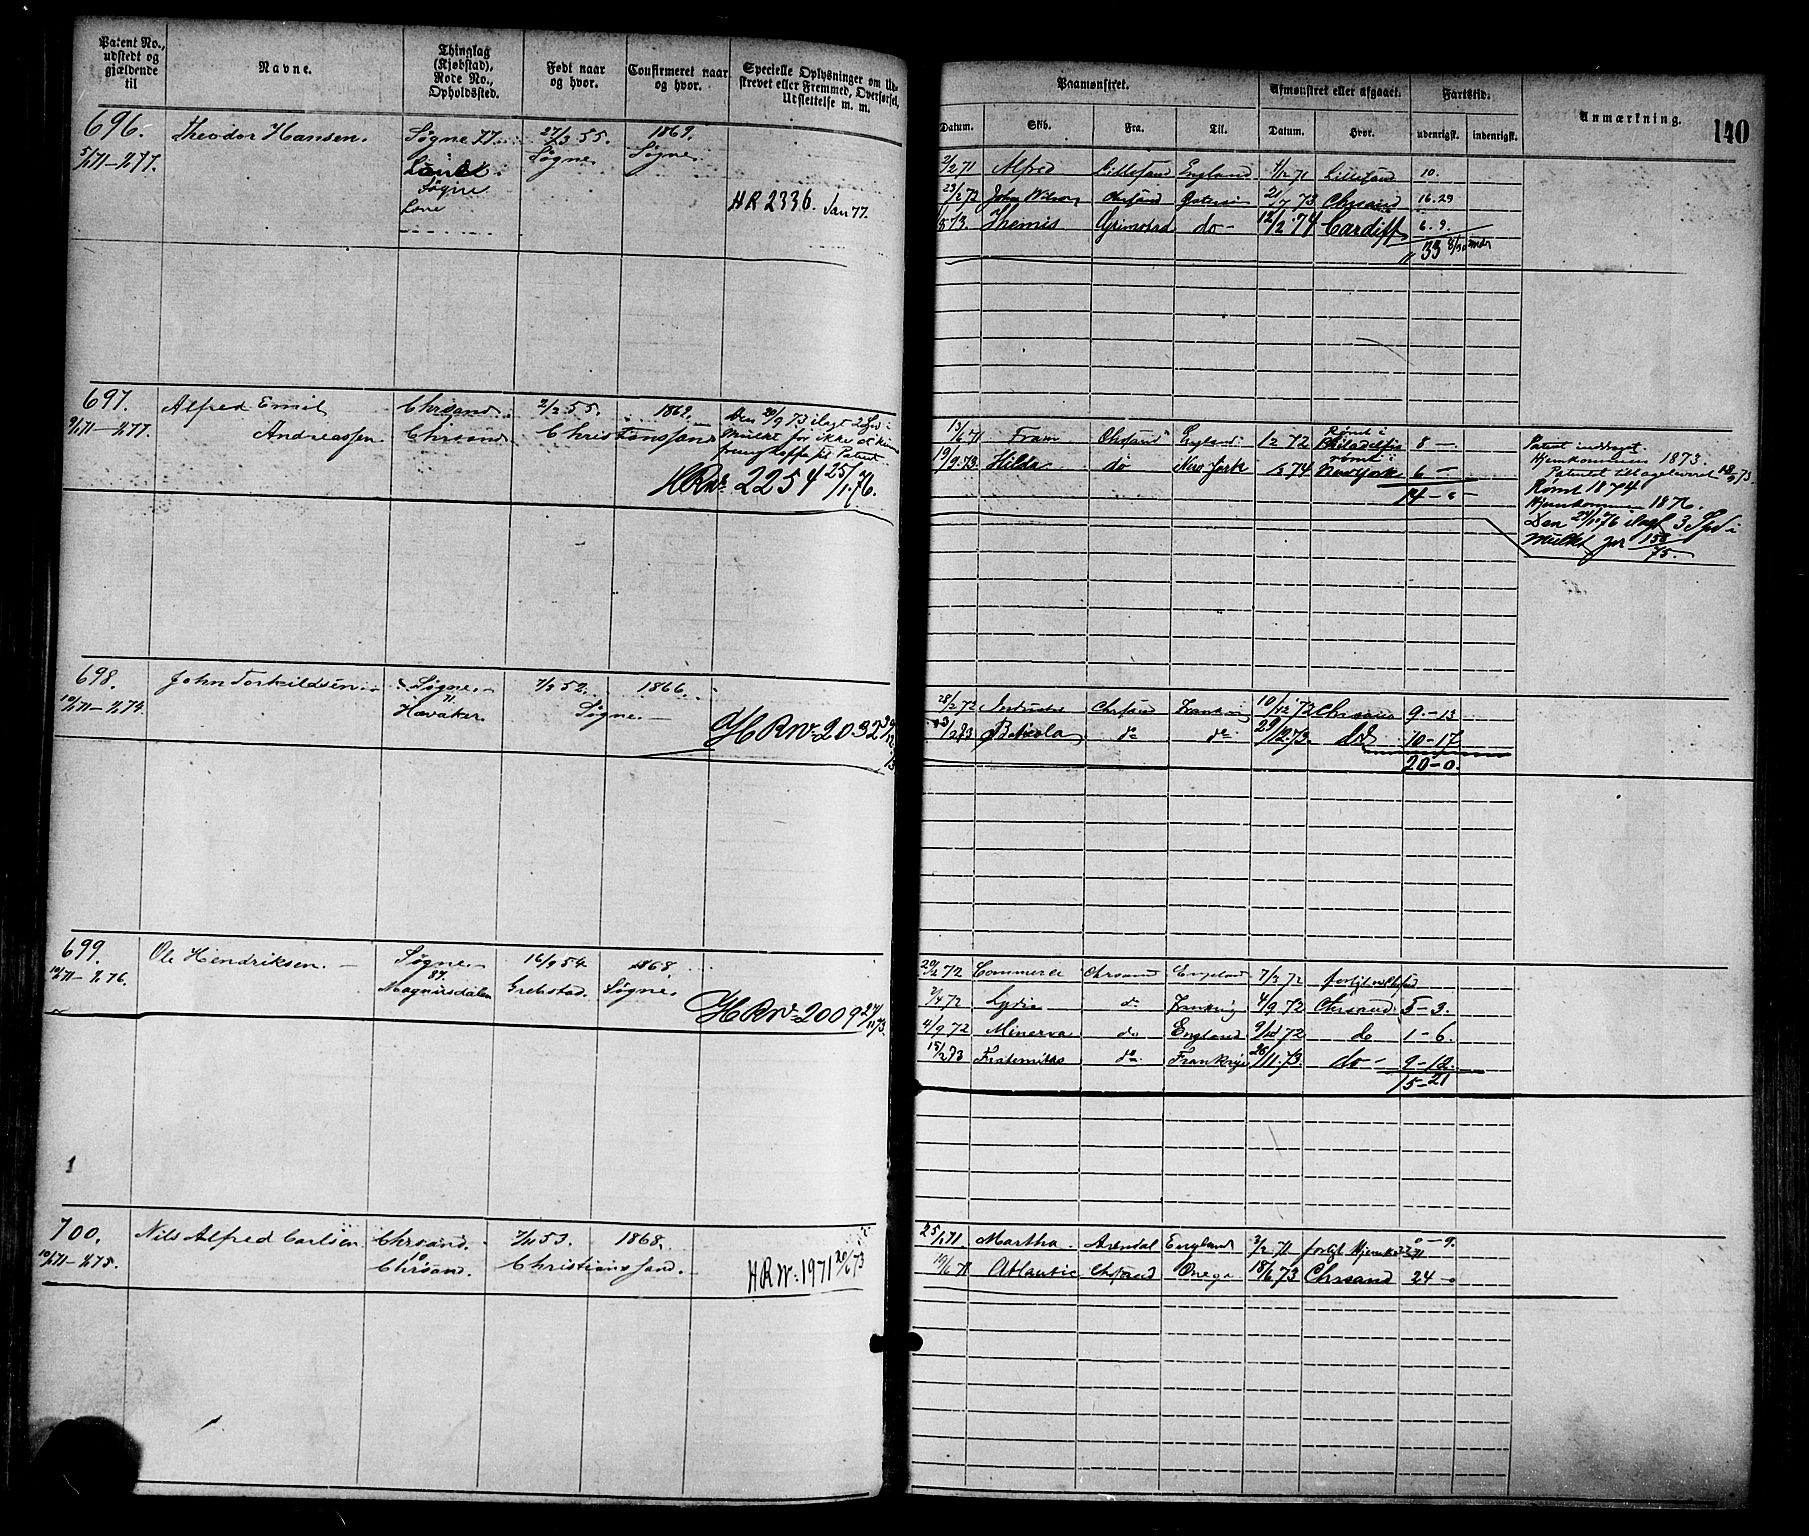 Patent No., udstedt og gjældende til
Navne.
Thinglag (Kjøbstad), Rode No., Opholdssted.
Født naar og hvor.
Confirmeret naar og hvor.
Specielle Oplysninger om Udskrevet eller Fremmed, Overførsel, Udslettelse m. m.
Paamønstret.
Afmønstret eller afgaaet.
Fartstid.
Anmærkning.
140
Datum.
Skib.
Fra.
Til.
Datum.
Hvor.
udenrigsk.
indenrigsk.
696. Theodor Hansen. Søgne 77. 27/3 55. 1869.
5/1 71 – 1/1 77. Søgne Søgne
Søgne
HR 2336. Jan 77.
2/2 71 Alfred Lillesand England 1/12 71 Lillesand 10.
23/2 72 John Wilson 21/7 73 Chrsand 16.29
Themis Grimstad do – 12/2 74 Cardiff 6. 9.
33
697. Alfred Emil Chrsand 2/2 55. 1869.
9/1 71 – 1/1 77. Andreassen Chrsand Christianssand
Den 20/9 73 ilagt 2 Spd i
Mulkt for ikke at kunne
fremskaffe sit Patent.
HR No 2254 25/1 76.
13/6 71 Fram Chrsand England 1/2 72 Rømt i Philadelfia 8 –
19/9 73 Hilda do New York 74 rømt i New York 6 –
14 – "
Patent inddraget
Hjemkommen 1873.
Patentet tilbageleveret
Rømt 1874
Hjemkommen 1876.
Den 76 ilagt 3 Spd i
Mulkt
698. John Torkildsen. Søgne 7/3 52. 1866.
10/1 71 – 1/1 74. 71. Søgne.
Havaker
HR No 2032
28/2 72 Chrsand Frankrig 10/12 72 Chrsand 9 – 13
do do 29/12 73 do 10 – 17
20 – 0.
699. Ole Hendriksen. Søgne 16/9 54 1868.
10/1 71 – 1/1 76. 87. Grebstad. Søgne.
Magnusdalen
HR No 2009 24/11 73.
20/2 72 Commerce Chrsand England 7/3 72
2/4 72 Lydia do Frankrig 4/9 72 Chrsand 5 – 3.
4/9 72 Minerva do England 9/10 72 do 1 – 6.
15/2 73 Fraternitas do Frankrig 26/11 73. do – 9 – 12.
15 – 21
700. Nils Alfred Carlsen Chrsand. 53. 1868.
10/1 71 – 1/1 75. 10 Christianssand.
Chrsand.
HR No 1971 20/6 73
25/1 71. Martha. Arendal England 3/2 71 forligt 0 – 9.
10/6 71 Atlantic Chrsand Onega 18/6 73 Chrsand 24 – 0